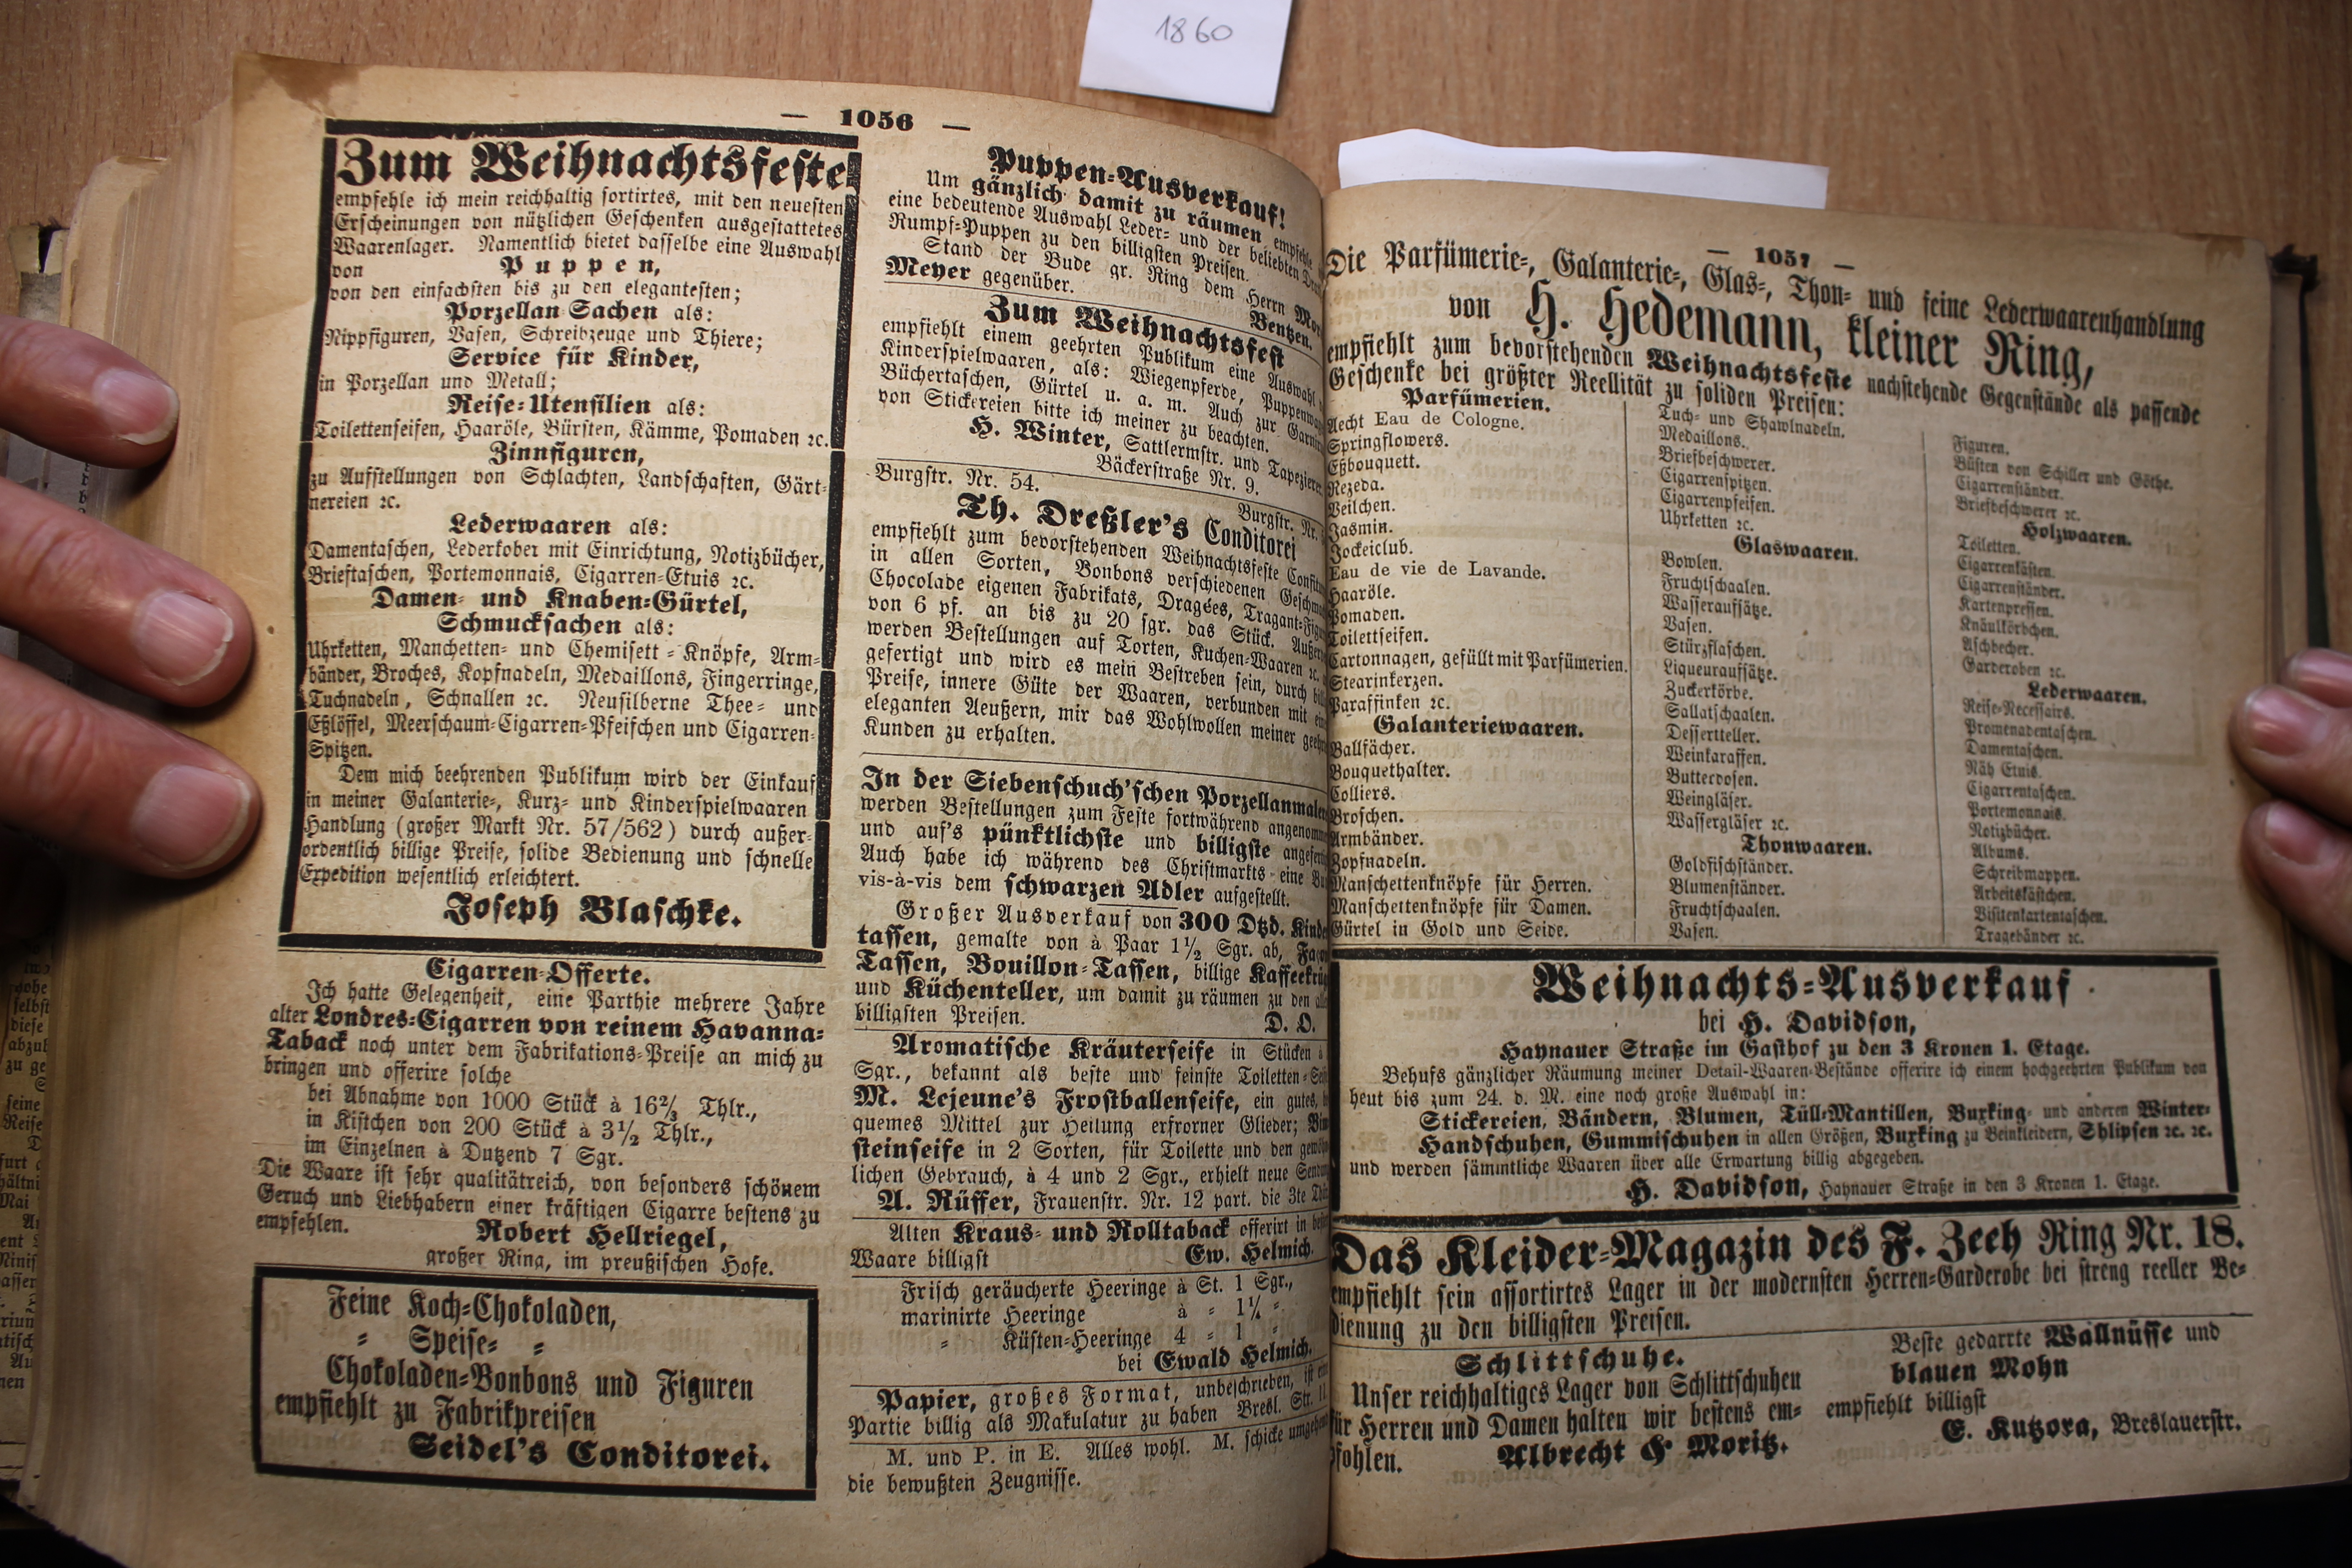 1860
— 1056 —
Zum Weihnachtsfeste
empfehle ich mein reichhaltig sortirtes, mit den neuesten
Erscheinungen von nützlichen Geschenken ausgestattetes
Waarenlager. Namentlich bietet dasselbe eine Auswahl
von Puppen,
von den einfachsten bis zu den elegantesten;
Porzellan Sachen als:
Nippfiguren, Vasen, Schreibzeuge und Thiere;
Service für Kinder,
in Porzellan und Metall;
Reise-Utensilien als:
Toilettenseifen, Haaröle, Bürsten, Kämme, Pomaden ꝛc.
Zinnfiguren,
zu Aufstellungen von Schlachten, Landschaften, Gärt-
nereien ꝛc.
Lederwaaren als:
Damentaschen, Lederkober mit Einrichtung, Notizbücher,
Brieftaschen, Portemonnais, Cigarren-Etuis ꝛc.
Damen- und Knaben-Gürtel,
Schmucksachen als:
Uhrketten, Manchetten- und Chemisett-Knöpfe, Arm-
bänder, Broches, Kopfnadeln, Medaillons, Fingerringe,
Tuchnadeln, Schnallen ꝛc. Neusilberne Thee- und
Eßlöffel, Meerschaum-Cigarren-Pfeifchen und Cigarren-
Spitzen.
Dem mich beehrenden Publikum wird der Einkauf
in meiner Galanterie-, Kurz- und Kinderspielwaaren
Handlung (großer Markt Nr. 57/562) durch außer-
ordentlich billige Preise, solide Bedienung und schnelle
Expedition wesentlich erleichtert.
Joseph Blaschke.
Cigarren-Offerte.
Ich hatte Gelegenheit, eine Parthie mehrere Jahre
alter Londres-Cigarren von reinem Havanna-
Taback noch unter dem Fabrikations-Preise an mich zu
bringen und offerire solche
bei Abnahme von 1000 Stück à 16⅔ Thlr.,
in Kistchen von 200 Stück à 3½ Thlr.,
im Einzelnen à Dutzend 7 Sgr.
Die Waare ist sehr qualitätreich, von besonders schönem
Geruch und Liebhabern einer kräftigen Cigarre bestens zu
empfehlen. Robert Hellriegel,
großer Ring, im preußischen Hofe.
Feine Koch-Chokoladen,
= Speise- =
Chokoladen-Bonbons und Figuren
empfiehlt zu Fabrikpreisen
Seidel's Conditorei.
Puppen-Ausverkauf!
Um gänzlich damit zu räumen empfehle
eine bedeutende Auswahl Leder- und der beliebten
Rumpf-Puppen zu den billigsten Preisen.
Stand der Bude gr. Ring dem Herrn
Meyer gegenüber. Bentzen.
Zum Weihnachtsfest
empfiehlt einem geehrten Publikum eine Auswahl
Kinderspielwaaren, als: Wiegenpferde,
Büchertaschen, Gürtel u. a. m. Auch zur
von Stickereien bitte ich meiner zu beachten.
H. Winter, Sattlermstr. und Tapezierer
Bäckerstraße Nr. 9.
Burgstr. Nr. 54. Burgstr. Nr.
Th. Dreßler's Conditorei
empfiehlt zum bevorstehenden Weihnachtsfeste
in allen Sorten, Bonbons verschiedenen
Chocolade eigenen Fabrikats, Dragées,
von 6 pf. an bis zu 20 sgr. das Stück.
werden Bestellungen auf Torten, Kuchen-Waaren ꝛc.
gefertigt und wird es mein Bestreben sein, durch
Preise, innere Güte der Waaren, verbunden mit
eleganten Aeußern, mir das Wohlwollen meiner
Kunden zu erhalten.
In der Siebenschuh'schen
werden Bestellungen zum Feste fortwährend
und auf's pünktlichste und billigste
Auch habe ich während des Christmarkts eine
vis-à-vis dem schwarzen Adler aufgestellt.
Großer Ausverkauf von 300 Dtzd.
tassen, gemalte von à Paar 1½ Sgr. ab,
Tassen, Bouillon-Tassen, billige
und Küchenteller, um damit zu räumen zu den
billigsten Preisen. D. O.
Aromatische Kräuterseife in Stücken à
Sgr., bekannt als beste und feinste
M. Lejeune's Frostballenseife, ein gutes,
quemes Mittel zur Heilung erfrorner Glieder;
steinseife in 2 Sorten, für Toilette und den
lichen Gebrauch, à 4 und 2 Sgr., erhielt neue
A. Rüffer, Frauenstr. Nr. 12 part. die 3te
Alten Kraus- und Rolltaback offerirt in
Waare billigst Ew. Helmich.
Frisch geräucherte Heeringe à St. 1 Sgr.,
marinirte Heeringe à = 1¼ =
= Küsten-Heeringe 4 = 1 =
bei Ewald Helmich.
Papier, großes Format, unbeschrieben, ist
Partie billig als Makulatur zu haben Bresl. Str.
M. und P. in E. Alles wohl. M. schicke
die bewußten Zeugnisse.
— 1057 —
Die Parfümerie-, Galanterie-, Glas-, Thon- und feine Lederwaarenhandlung
von H. Hedemann, kleiner Ring,
empfiehlt zum bevorstehenden Weihnachtsfeste nachstehende Gegenstände als passende
Geschenke bei größter Reellität zu soliden Preisen:
Parfümerien.
Aecht Eau de Cologne.
Springflowers.
Eßbouquett.
Rezeda.
Veilchen.
Jasmin.
Jockeiclub.
Eau de vie de Lavande.
Haaröle.
Pomaden.
Toilettseifen.
Cartonnagen, gefüllt mit Parfümerien.
Stearinkerzen.
Paraffinken ꝛc.
Galanteriewaaren.
Ballfächer.
Bouquethalter.
Colliers.
Broschen.
Armbänder.
Zopfnadeln.
Manschettenknöpfe für Herren.
Manschettenknöpfe für Damen.
Gürtel in Gold und Seide.
Tuch- und Shawlnadeln.
Medaillons.
Briefbeschwerer.
Cigarrenspitzen.
Cigarrenpfeifen.
Uhrketten ꝛc.
Glaswaaren.
Bowlen.
Fruchtschaalen.
Wasseraufsätze.
Vasen.
Stürzflaschen.
Liqueuraufsätze.
Zuckerkörbe.
Sallatschaalen.
Dessertteller.
Weinkaraffen.
Butterdosen.
Weingläser.
Wassergläser ꝛc.
Thonwaaren.
Goldfischständer.
Blumenständer.
Fruchtschaalen.
Vasen.
Figuren.
Büsten von Schiller und Göthe.
Cigarrenständer.
Briefbeschwerer ꝛc.
Holzwaaren.
Toiletten.
Cigarrenkästen.
Cigarrenständer.
Kartenpressen.
Knäulkörbchen.
Aschbecher.
Garderoben ꝛc.
Lederwaaren.
Reise-Necessairs.
Promenadentaschen.
Damentaschen.
Näh Etuis.
Cigarrentaschen.
Portemonnais.
Notizbücher.
Albums.
Schreibmappen.
Arbeitskästchen.
Visitenkartentaschen.
Tragebänder ꝛc.
Weihnachts-Ausverkauf
bei H. Davidson,
Haynauer Straße im Gasthof zu den 3 Kronen 1. Etage.
Behufs gänzlicher Räumung meiner Detail-Waaren-Bestände offerire ich einem hochgeehrten Publikum von
heut bis zum 24. d. M. eine noch große Auswahl in:
Stickereien, Bändern, Blumen, Tüll-Mantillen, Buxking- und anderen Winter-
Handschuhen, Gummischuhen in allen Größen, Buxking zu Beinkleidern, Shlipsen ꝛc. ꝛc.
und werden sämmtliche Waaren über alle Erwartung billig abgegeben.
H. Davidson, Haynauer Straße in den 3 Kronen 1. Etage.
Das Kleider-Magazin des F. Zeeh Ring Nr. 18.
empfiehlt sein assortirtes Lager in der modernsten Herren-Garderobe bei streng reeller Be-
dienung zu den billigsten Preisen.
Schlittschuhe.
Unser reichhaltiges Lager von Schlittschuhen
für Herren und Damen halten wir bestens em-
pfohlen. Albrecht & Moritz.
Beste gedarrte Wallnüsse und
blauen Mohn
empfiehlt billigst
E. Kutzora, Breslauerstr.